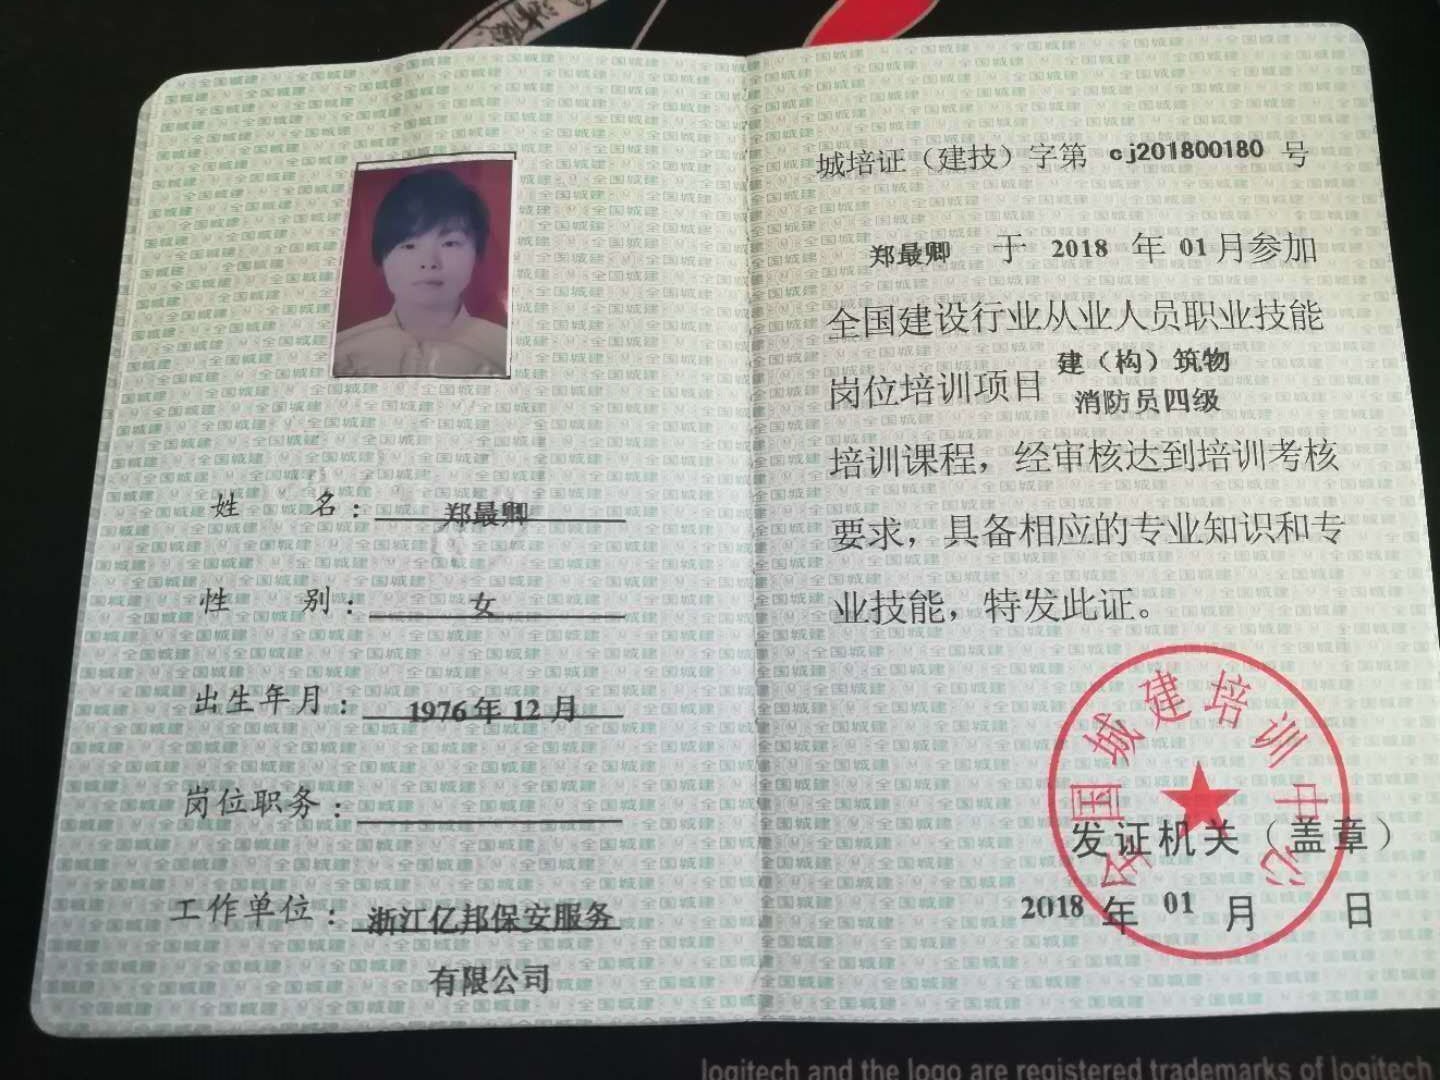 姓 名：郑最卿
性 别：女
出生年月：1976年12月
岗位职务：
工作单位：浙江亿邦保安服务
有限公司
城培证（建技）字第 cj201800180 号
郑最卿 于 2018 年 01 月参加
全国建设行业从业人员职业技能
岗位培训项目 建（构）筑物
消防员四级
培训课程，经审核达到培训考核
要求，具备相应的专业知识和专
业技能，特发此证。
全国城建培训中心
发证机关（盖章）
2018 年 01 月 日
logitech and the logo are registered trademarks of logitech